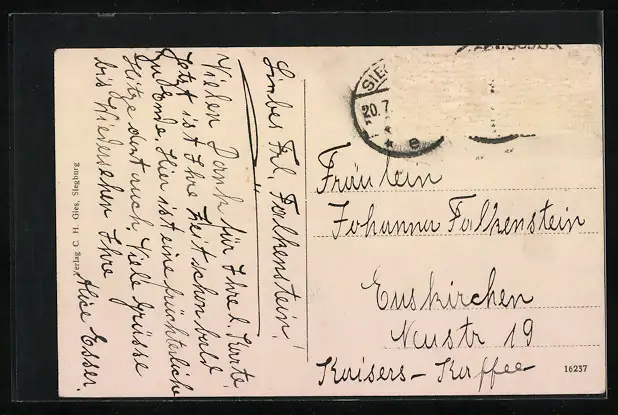 Liebes Frl. Falkenstein!
Vielen Dank für Ihre l. Karte.
Jetzt ist Ihre Zeit schon bald
zu Ende. Hier ist eine fürchterliche
Hitze dort auch. Viele Grüsse
bis Wiedersehen Ihre
Alice Esser.
Verlag C. H. Gies, Siegburg
SIEG
20.7
* e
Fräulein
Johanna Falkenstein
Euskirchen
Neustr 19
Kaisers-Kaffee
16237